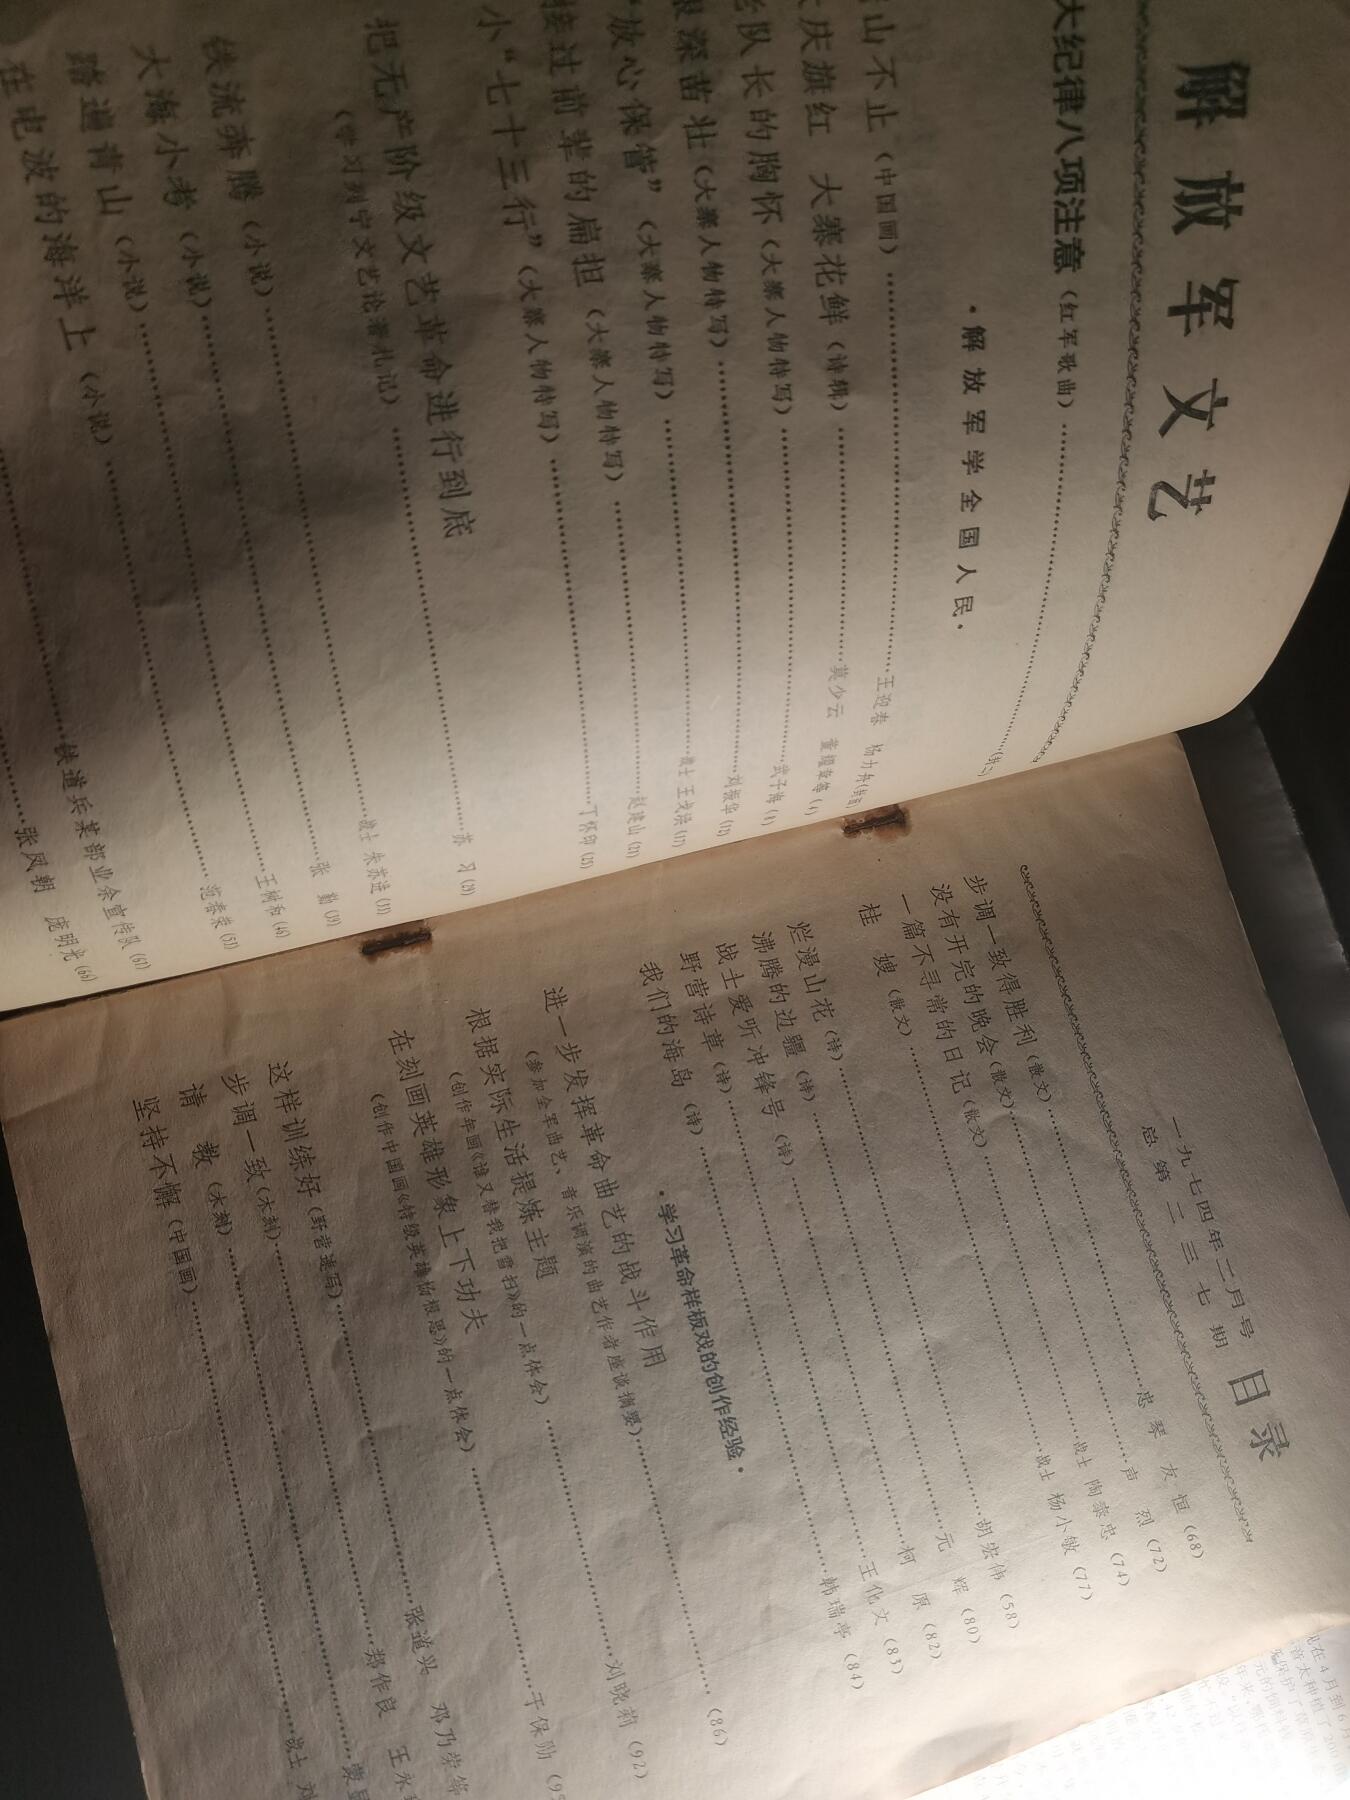 解放军文艺
大纪律八项注意（红军歌曲）(封二)
·解放军学全国人民·
山不止（中国画）王迎春 杨力舟(封面)
庆旗红 大寨花鲜（诗辑）莫少云 董耀章等(4)
队长的胸怀（大寨人物特写）武子海(8)
深苗壮（大寨人物特写）刘振华(12)
“放心保管”（大寨人物特写）战士 王戈洪(17)
接过前辈的扁担（大寨人物特写）赵建山(21)
小“七十三行”（大寨人物特写）丁怀印(25)
把无产阶级文艺革命进行到底
（学习列宁文艺论著札记）苏 习(29)
铁流奔腾（小说）战士 朱苏进(33)
大海小考（小说）张 勤(39)
踏遍青山（小说）王树和(46)
在电波的海洋上（小说）范春荣(53)
铁道兵某部业余宣传队(61)
张凤朝 庞明光(66)
一九七四年二月号
总第二三七期
目录
步调一致得胜利（散文）忠琴 友恒(68)
没有开完的晚会（散文）声 烈(72)
一篇不寻常的日记（散文）战士 陶泰忠(74)
桂 嫂（散文）战士 杨小敏(77)
烂漫山花（诗）胡宏伟(58)
沸腾的边疆（诗）元 辉(80)
战士爱听冲锋号（诗）柯 原(82)
野营诗章（诗）王化文(83)
我们的海岛（诗）韩瑞亭(84)
·学习革命样板戏的创作经验·
进一步发挥革命曲艺的战斗作用
（参加全军曲艺、音乐调演的曲艺作者座谈摘要）(86)
根据实际生活提炼主题
（创作年画《谁又替我把雪扫》的一点体会）刘晓莉(92)
在刻画英雄形象上下功夫
（创作中国画《特级英雄杨根思》的一点体会）于保勋
这样训练好（野营速写）张道兴 邓乃荣等
步调一致（木刻）郑作良 王永
请 教（木刻）
坚持不懈（中国画）战士